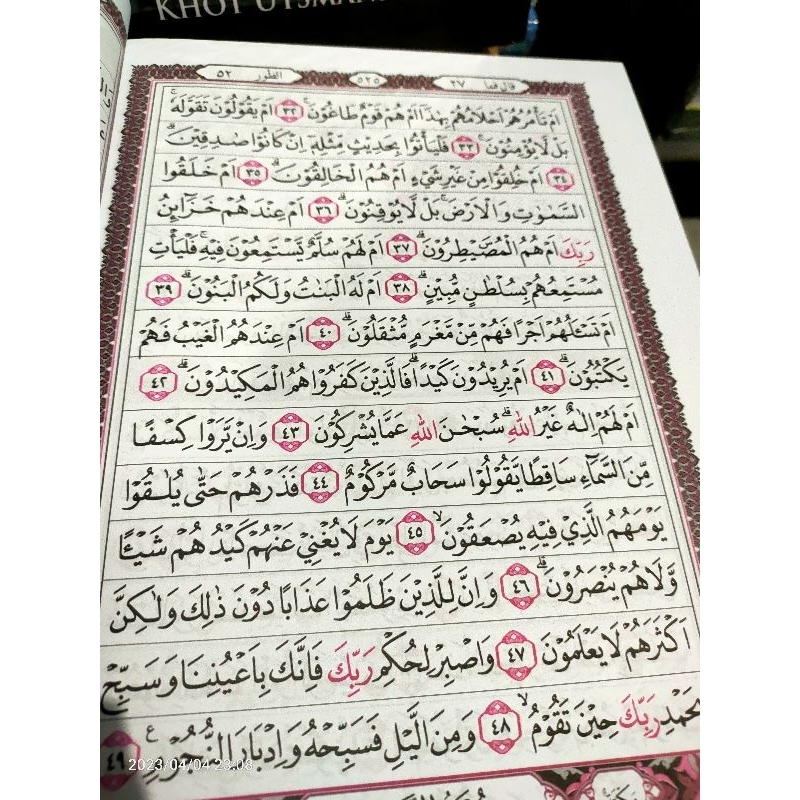 KHOT UTSMAN
قال فما ٢٧
٥٢٥
الطور ٥٢
اَمْ تَأْمُرُهُمْ اَحْلَامُهُمْ بِهٰذَآ اَمْ هُمْ قَوْمٌ طَاغُوْنَۚ ٣٢ اَمْ يَقُوْلُوْنَ تَقَوَّلَهٗۚ
بَلْ لَّا يُؤْمِنُوْنَۚ ٣٣ فَلْيَأْتُوْا بِحَدِيْثٍ مِّثْلِهٖٓ اِنْ كَانُوْا صٰدِقِيْنَۗ
٣٤ اَمْ خُلِقُوْا مِنْ غَيْرِ شَيْءٍ اَمْ هُمُ الْخَالِقُوْنَۗ ٣٥ اَمْ خَلَقُوا
السَّمٰوٰتِ وَالْاَرْضَۚ بَلْ لَّا يُوْقِنُوْنَۗ ٣٦ اَمْ عِنْدَهُمْ خَزَاۤىِٕنُ
رَبِّكَ اَمْ هُمُ الْمُصَۣيْطِرُوْنَۗ ٣٧ اَمْ لَهُمْ سُلَّمٌ يَّسْتَمِعُوْنَ فِيْهِۚ فَلْيَأْتِ
مُسْتَمِعُهُمْ بِسُلْطٰنٍ مُّبِيْنٍۗ ٣٨ اَمْ لَهُ الْبَنٰتُ وَلَكُمُ الْبَنُوْنَۗ ٣٩
اَمْ تَسْـَٔلُهُمْ اَجْرًا فَهُمْ مِّنْ مَّغْرَمٍ مُّثْقَلُوْنَۗ ٤٠ اَمْ عِنْدَهُمُ الْغَيْبُ فَهُمْ
يَكْتُبُوْنَۗ ٤١ اَمْ يُرِيْدُوْنَ كَيْدًاۗ فَالَّذِيْنَ كَفَرُوْا هُمُ الْمَكِيْدُوْنَۗ ٤٢
اَمْ لَهُمْ اِلٰهٌ غَيْرُ اللّٰهِۗ سُبْحٰنَ اللّٰهِ عَمَّا يُشْرِكُوْنَ ٤٣ وَاِنْ يَّرَوْا كِسْفًا
مِّنَ السَّمَاۤءِ سَاقِطًا يَّقُوْلُوْا سَحَابٌ مَّرْكُوْمٌ ٤٤ فَذَرْهُمْ حَتّٰى يُلٰقُوْا
يَوْمَهُمُ الَّذِيْ فِيْهِ يُصْعَقُوْنَۙ ٤٥ يَوْمَ لَا يُغْنِيْ عَنْهُمْ كَيْدُهُمْ شَيْـًٔا
وَّلَا هُمْ يُنْصَرُوْنَۗ ٤٦ وَاِنَّ لِلَّذِيْنَ ظَلَمُوْا عَذَابًا دُوْنَ ذٰلِكَ وَلٰكِنَّ
اَكْثَرَهُمْ لَا يَعْلَمُوْنَ ٤٧ وَاصْبِرْ لِحُكْمِ رَبِّكَ فَاِنَّكَ بِاَعْيُنِنَا وَسَبِّحْ
بِحَمْدِ رَبِّكَ حِيْنَ تَقُوْمُۙ ٤٨ وَمِنَ الَّيْلِ فَسَبِّحْهُ وَاِدْبَارَ النُّجُوْمِ ࣖ ٤٩
2023/04/04 23:08